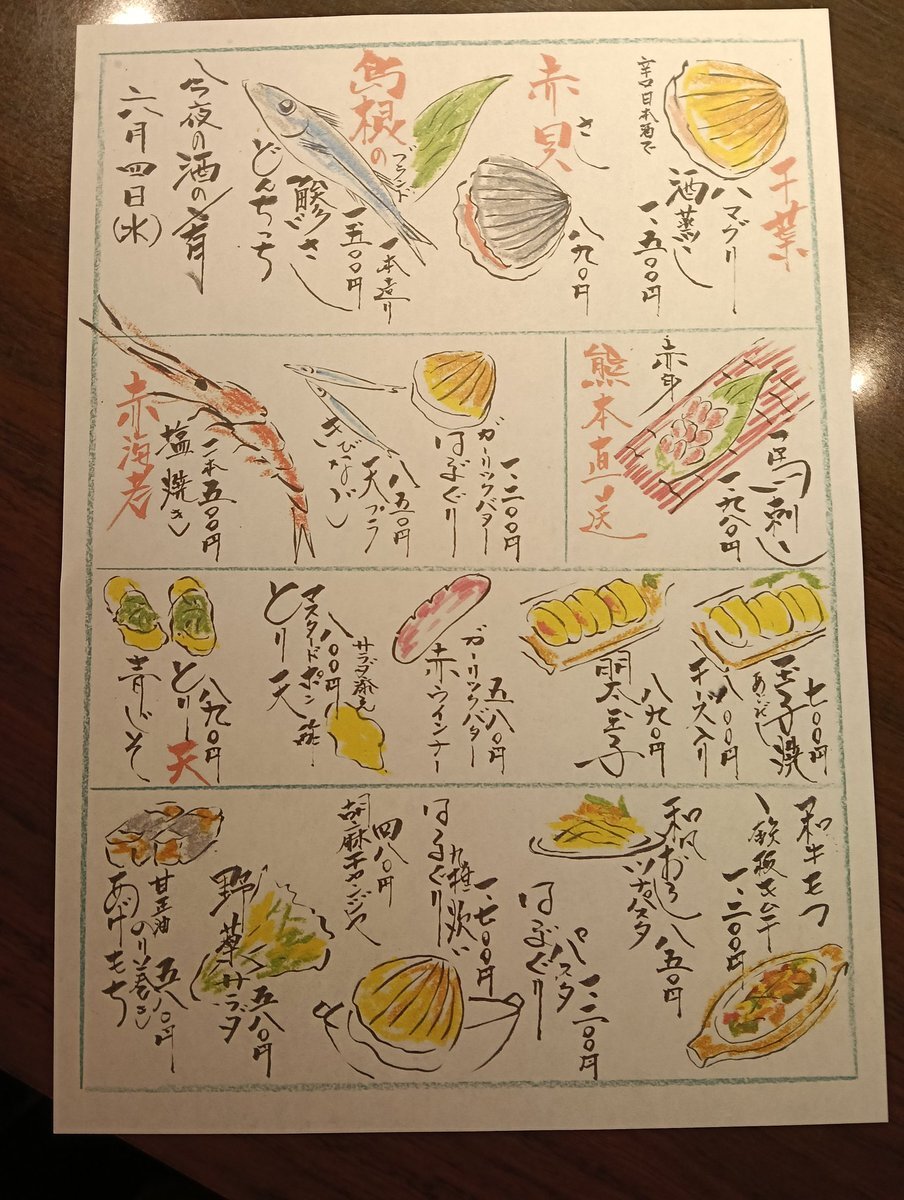 六月四日(水)
今夜の酒の肴
千葉
ハマグリ
酒蒸し
一、五〇〇円
辛口日本酒で
赤貝
さし
八九〇円
島根の
ブランド
一本造り
一、五〇〇円
鯵さし
どんちっち
熊本直送
赤身
馬刺し
一、九八〇円
ガーリックバター
はまぐり
一、二〇〇円
きびなご
天プラ
八五〇円
赤海老
二本五〇〇円
塩焼き
玉子焼
七〇〇円
チーズ入り
八〇〇円
明太玉子
八九〇円
ガーリックバター
赤ウインナー
五八〇円
サラダ添え
八〇〇円
マスタードポン酢
とり天
とり天
青じそ
八九〇円
和牛モツ
鉄板キムチ
一、二〇〇円
和風おろし
ツナパスタ
八五〇円
はまぐり
パスタ
一、二〇〇円
はまぐり
一、七〇〇円
胡麻チャンジャ
四八〇円
野草サラダ
五八〇円
甘正油
のり巻き
あげもち
五八〇円